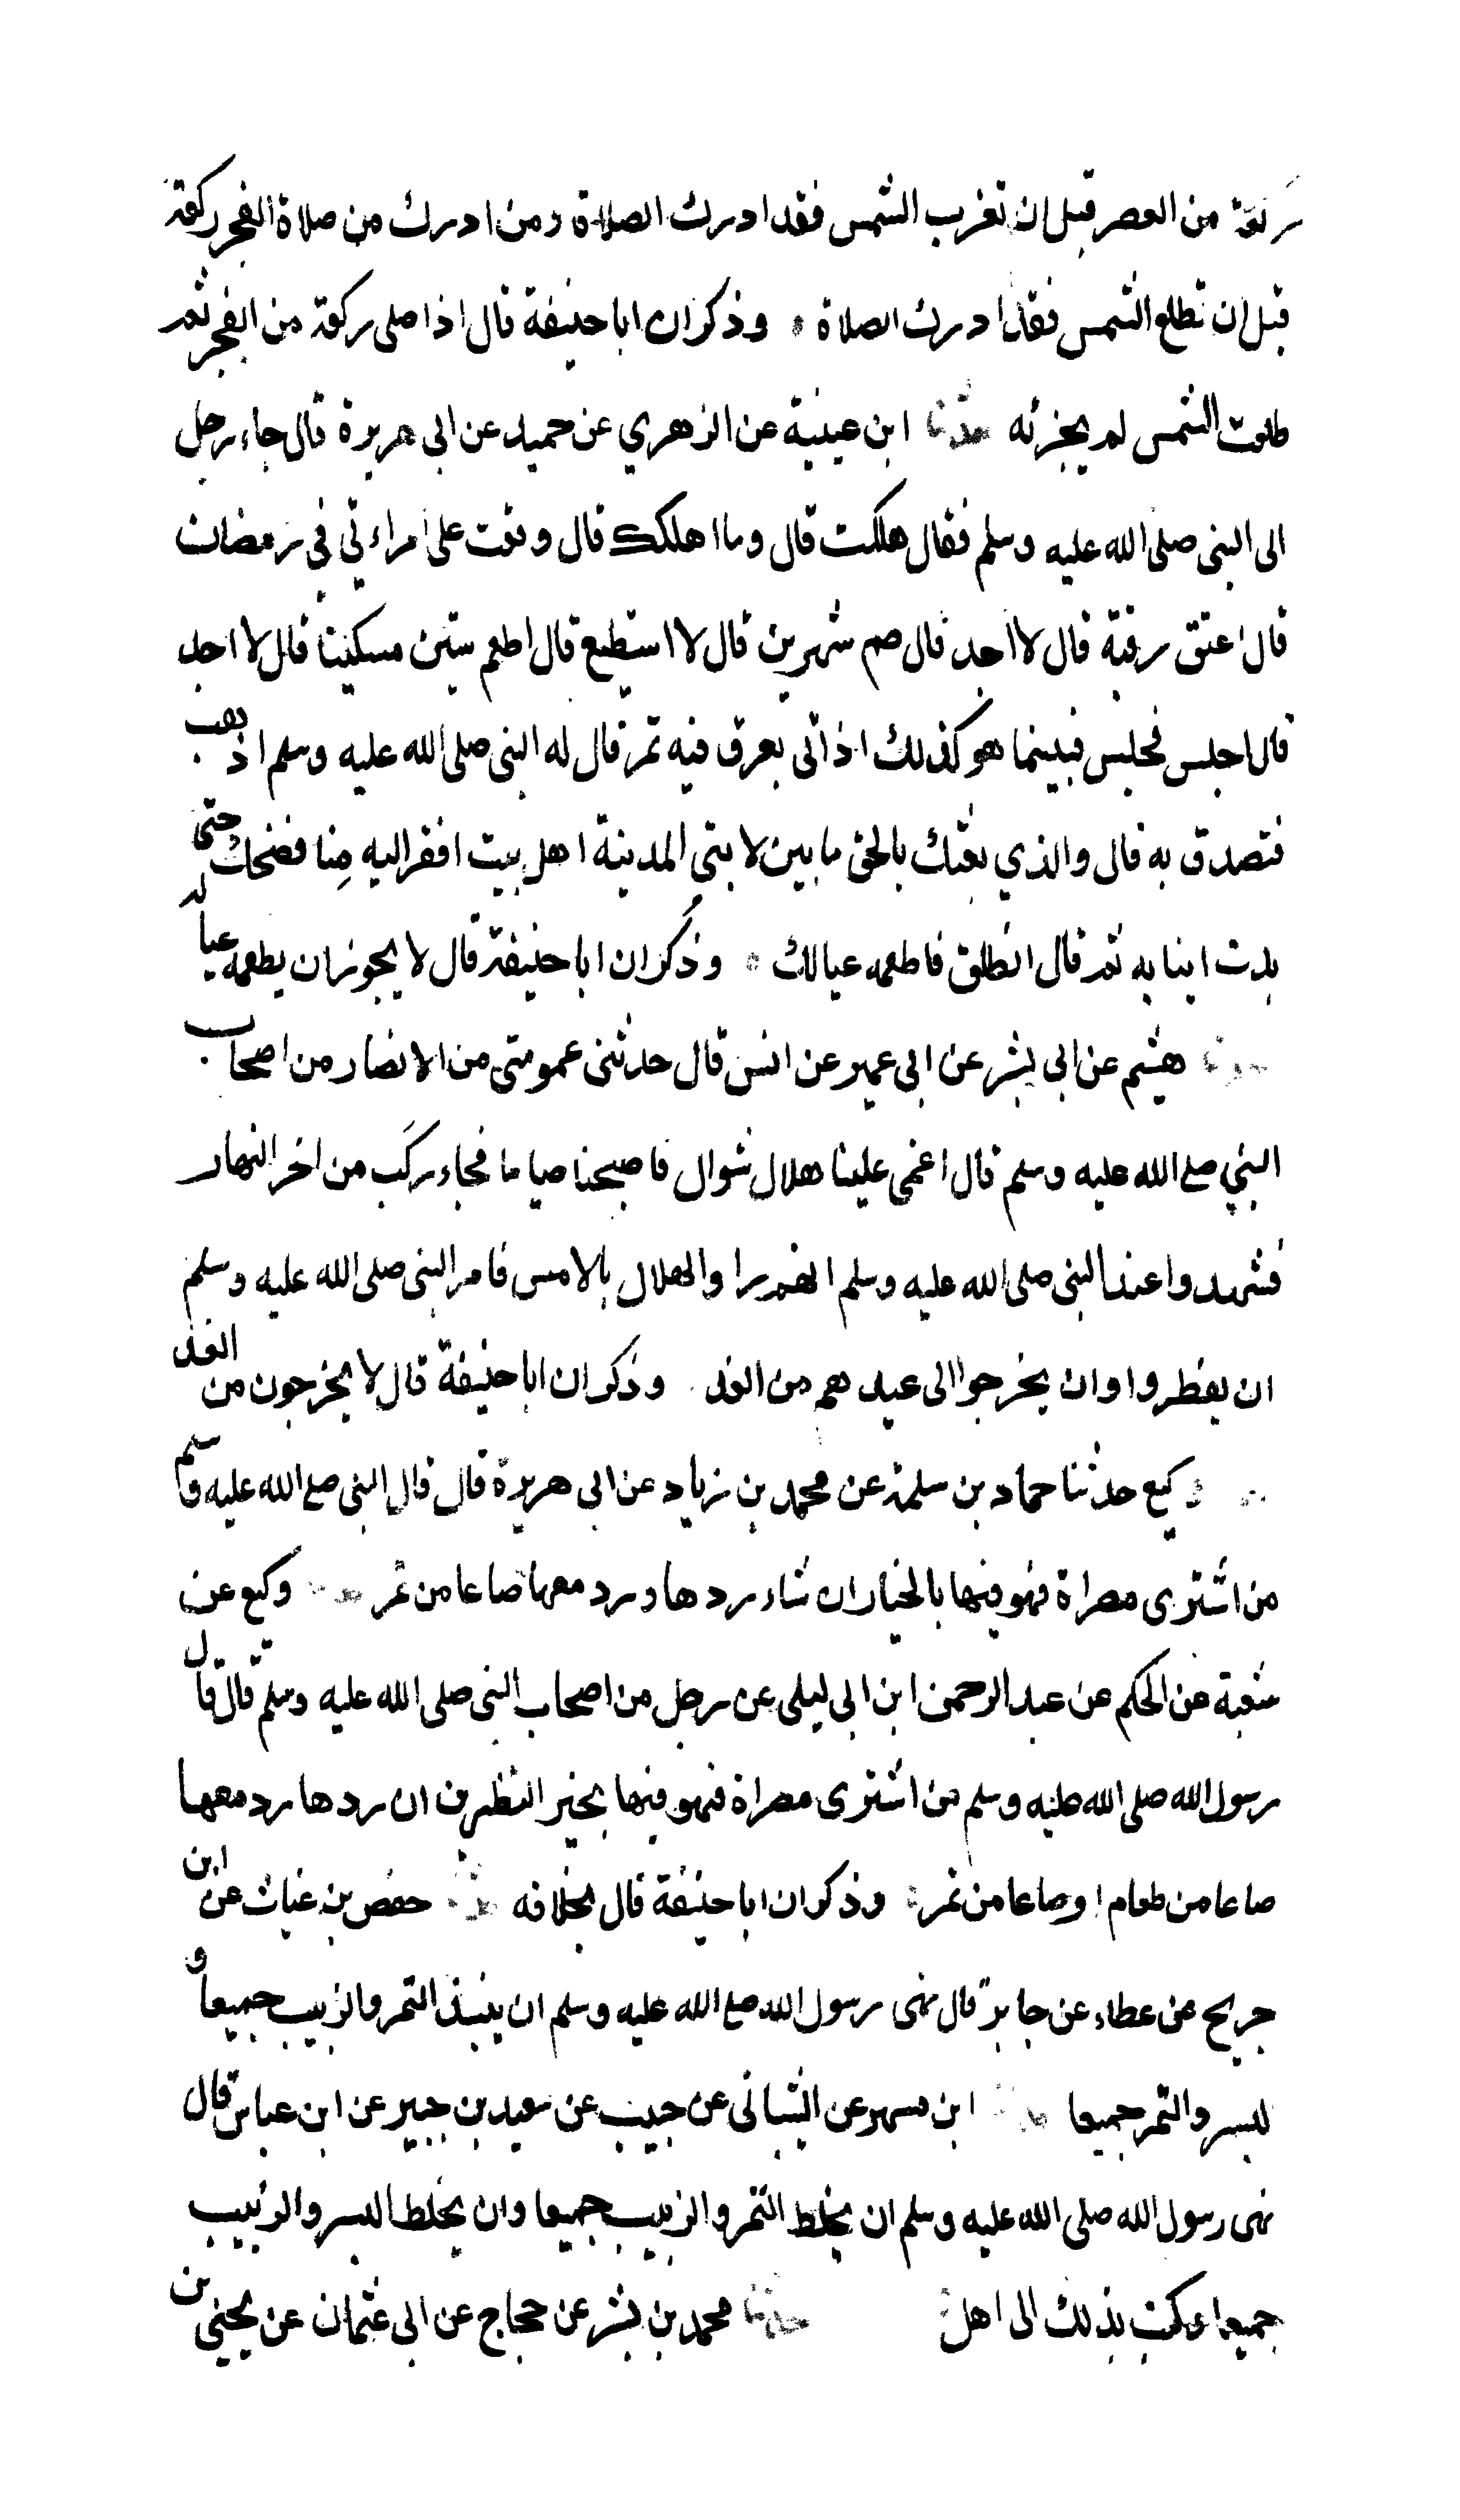 ركعة من العصر قبل ان تغرب الشمس فقد ادرك الصلاة ومن ادرك من صلاة الفجر ركعة
قبل ان تطلع الشمس فقد ادرك الصلاة وذكر ان ابا حنيفة قال اذا صلى ركعة من الفجر ثم
طلعت الشمس لم يجزئه حدثنا ابن عيينة عن الزهري عن حميد عن ابي هريرة قال جاء رجل
الى النبي صلى الله عليه وسلم فقال هلكت قال وما اهلكك قال وقعت على امراءتي في رمضان
قال اعتق رقبة قال لا اجد قال صم شهرين قال لا استطيع قال اطعم ستين مسكينا قال لا اجد
قال اجلس فجلس فبينما هو كذلك اذ اتي بعرق فيه تمر قال له النبي صلى الله عليه وسلم اذهب
فتصدق به قال والذي بعثك بالحق ما بين لابتي المدينة اهل بيت افقر اليه منا فضحك حتى
بدت انيابه ثم قال انطلق فاطعمه عيالك وذكر ان ابا حنيفة قال لا يجوز ان يطعمه عياله
حدثنا هشيم عن ابي بشر عن ابي عمير عن انس قال حدثني عمومتي من الانصار من اصحاب
النبي صلع الله عليه وسلم قال اغمي علينا هلال شوال فاصبحنا صياما فجاء ركب من اخر النهار
فشهدوا عند النبي صلى الله عليه وسلم انهم راوا الهلال بالامس فامر النبي صلى الله عليه وسلم
ان يفطروا وان يخرجوا الى عيدهم من الغد وذكر ان ابا حنيفة قال لا يخرجون من الغد
وكيع حدثنا حماد بن سلمة عن محمد بن زياد عن ابي هريرة قال قال النبي صلع الله عليه وسلم
من اشترى مصراة فهو فيها بالخيار ان شاء ردها ورد معها صاعا من تمر وكيع عن
شعبة عن الحكم عن عبد الرحمن ابن ابي ليلى عن رجل من اصحاب النبي صلى الله عليه وسلم قال قال
رسول الله صلى الله عليه وسلم من اشترى مصراة فهو فيها بخير النظرين ان ردها رد معها
صاعا من طعام او صاعا من تمر وذكر ان ابا حنيفة قال بخلافه حفص بن غياث عن ابن
جريج عن عطاء عن جابر قال نهى رسول الله صلع الله عليه وسلم ان ينبذ التمر والزبيب جميعا و
البسر والتمر جميعا ابن مسهر عن الشيباني عن حبيب عن سعيد بن جبير عن ابن عباس قال
نهى رسول الله صلى الله عليه وسلم ان يخلط التمر والزبيب جميعا وان يخلط البسر والزبيب
جميعا وكتب بذلك الى اهل حدثنا محمد بن بشر عن حجاج عن ابي عثمان عن يحيى بن